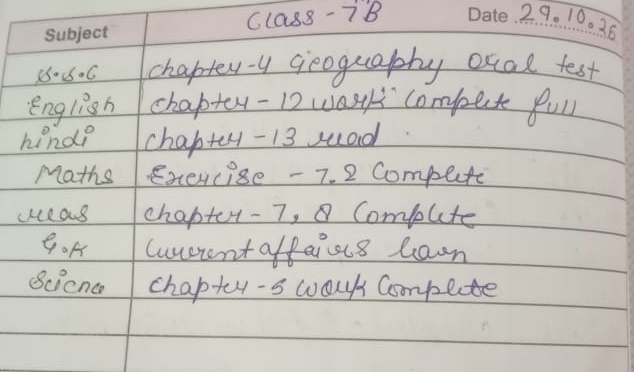 Class - 7B
Subject Date 29.10.26
S.S.C chapter-4 Geography oral test
English chapter - 12 work complete full
hindi chapter - 13 read
Maths Exercise - 7.2 Complete
chapter - 7, 8 Complete
G.K Current affairs learn
Science chapter - 5 work Complete